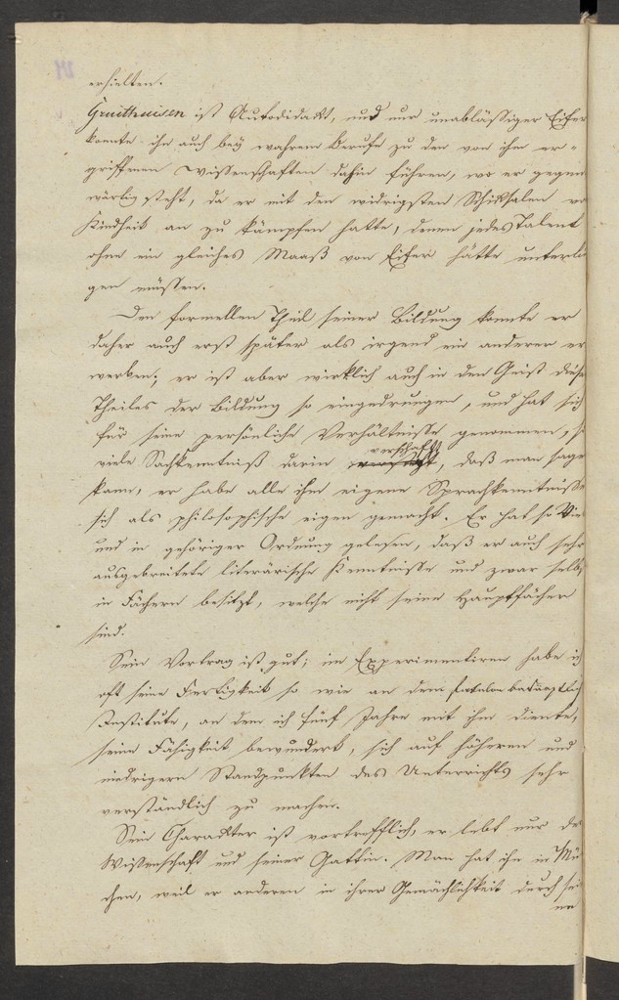 erhielten.
Gruithuisen ist Autodidakt, und nur unablässiger Eifer
konnte ihn auch bey wahrem Berufe zu den von ihm er=
griffenen Wissenschaften dahin führen, wo er gegen
wärtig steht, da er mit den widrigsten Schiksalen vo
Kindheit an zu kämpfen hatte, denen jedes Talent
ohne ein gleiches Maaß von Eifer hätte unterlie
gen müssen.
Den formellen Theil seiner Bildung konnte er
daher auch erst später als irgend ein anderer er
werben; er ist aber wirklich auch in den Geist dieses
Theiles der Bildung so eingedrungen, und hat sich
für seine persönliche Verhältnisse genommen, so
verschafft
viele Sachkenntniß darin, daß man sagen
kann, er habe alle ihm eigene Sprachkenntnisse
sich als philosophische eigen gemacht. Er hat so Viel
und in gehöriger Ordnung gelesen, daß er auch sehr
ausgebreitete literärische Kenntnisse und zwar selbst
in Fächern besitzt, welche nicht seine Hauptfächer
sind.
Sein Vortrag ist gut; im Experimentiren habe ich
oft seine Fertigkeit so wie an dem
Institute, an dem ich fünf Jahre mit ihm diente,
seine Fähigkeit bewundert, sich auf höheren und
niedrigern Standpunkten des Unterrichts sehr
verständlich zu machen.
Sein Charakter ist vortrefflich, er lebt nur der
Wissenschaft und seiner Gattin. Man hat ihn in Mün
chen, weil er anderen in ihrer Gemächlichkeit durch sei
ne